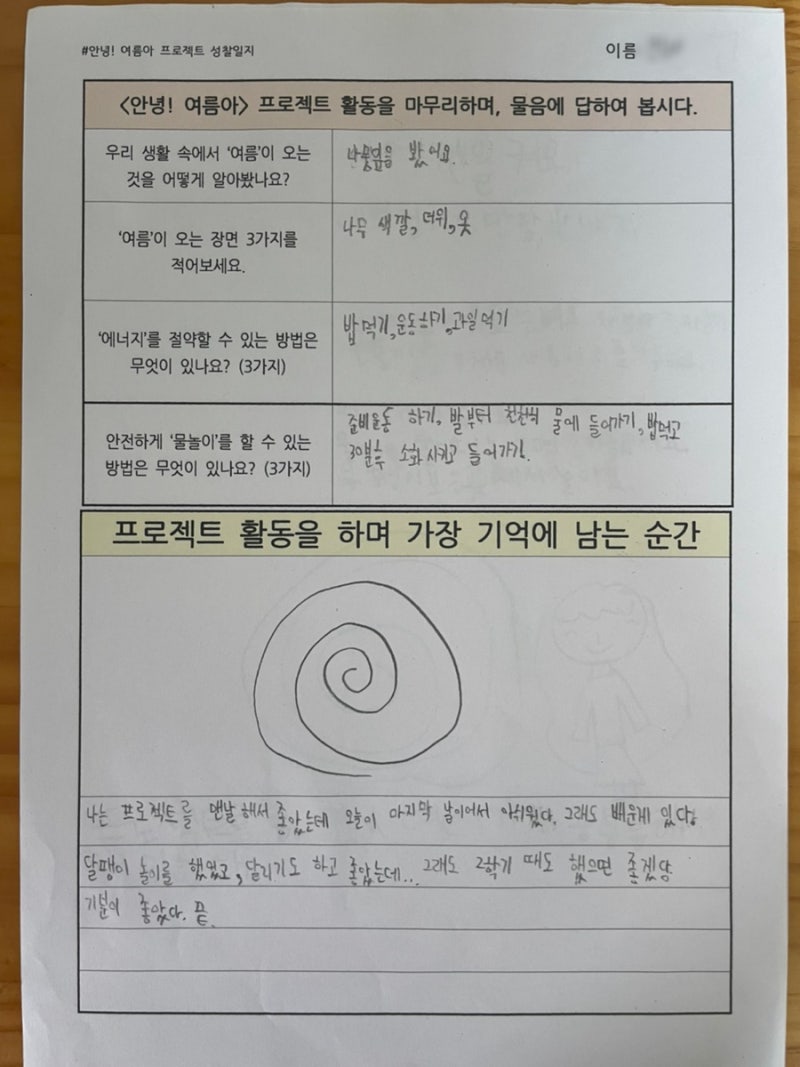 #안녕! 여름아 프로젝트 성찰일지
이름
<안녕! 여름아> 프로젝트 활동을 마무리하며, 물음에 답하여 봅시다.
우리 생활 속에서 '여름'이 오는
것을 어떻게 알아봤나요?
나뭇잎을 봤어요.
'여름'이 오는 장면 3가지를
적어보세요.
나무 색깔, 더위, 옷
'에너지'를 절약할 수 있는 방법은
무엇이 있나요? (3가지)
밥 먹기, 운동하기, 과일먹기
안전하게 '물놀이'를 할 수 있는
방법은 무엇이 있나요? (3가지)
준비운동 하기, 발부터 천천히 물에 들어가기, 밥먹고
30분후 소화시키고 들어가기.
프로젝트 활동을 하며 가장 기억에 남는 순간
나는 프로젝트를 맨날 해서 좋았는데 오늘이 마지막 날이어서 아쉬웠다. 그래도 배운게 있다.
달팽이 놀이를 했었고, 달리기도 하고 좋았는데... 그래도 2학기 때도 했으면 좋겠당
기분이 좋았다. 끝.